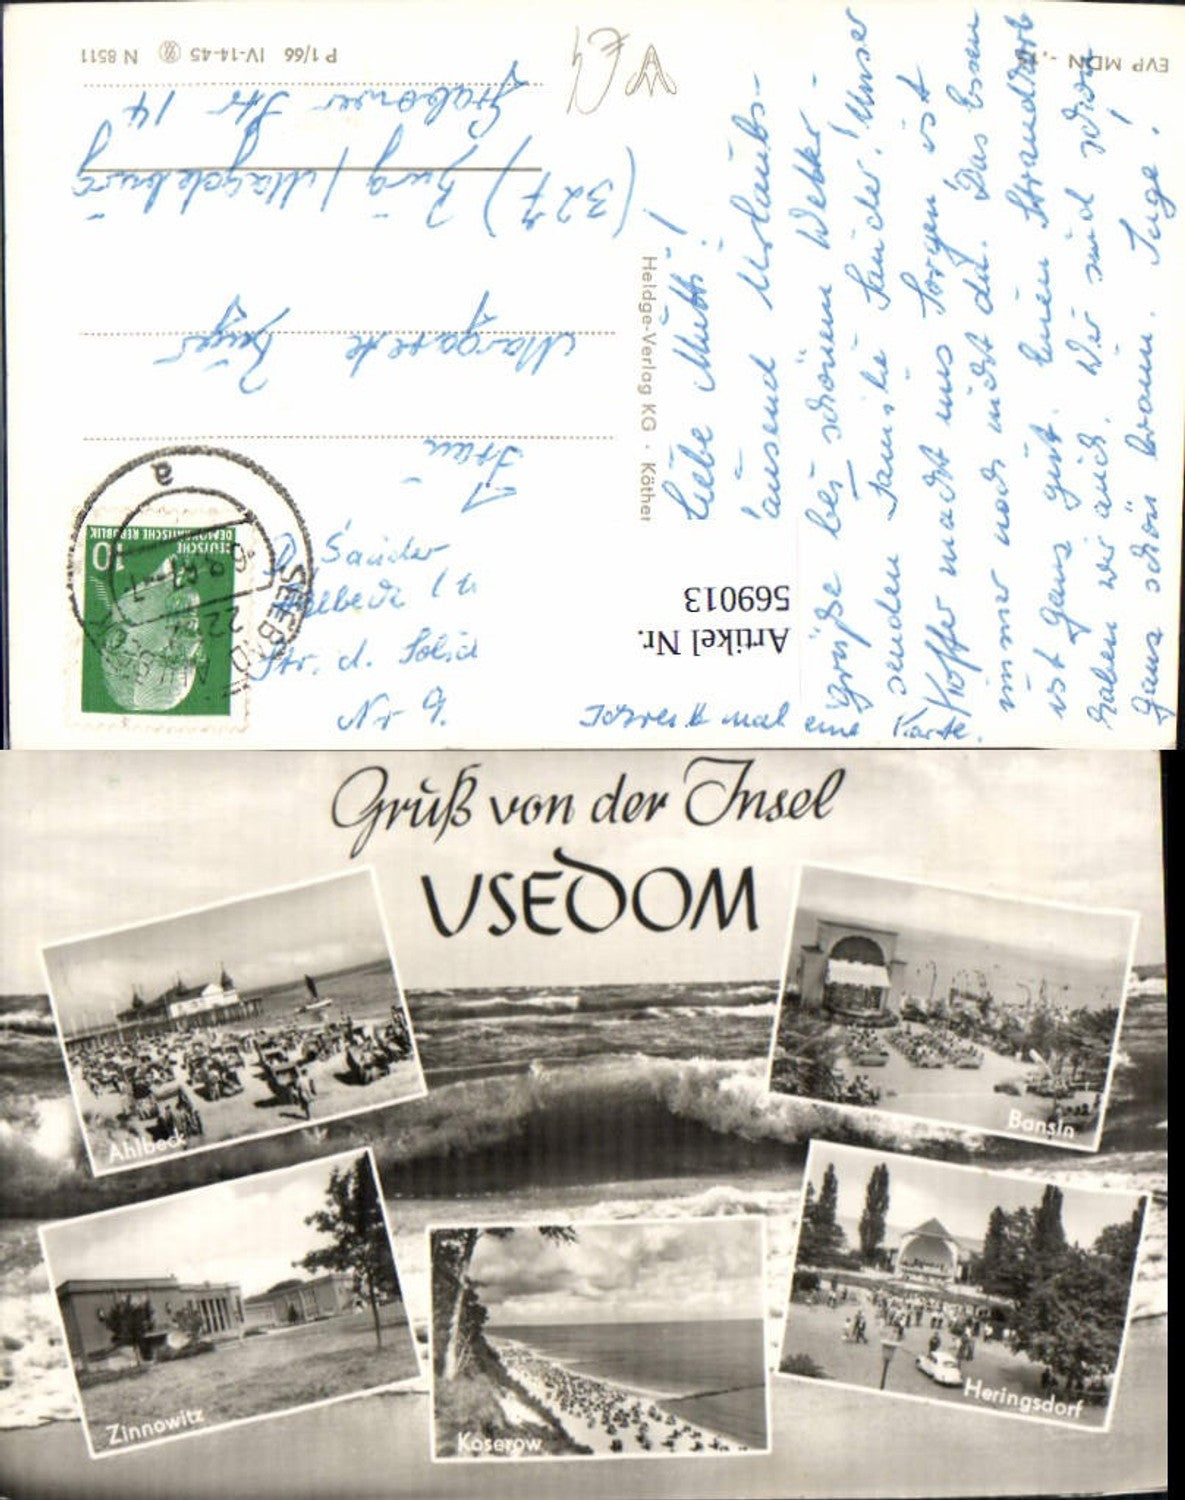 Liebe Mutti!
Tausend Urlaubs-
grüße bei schönem Wetter
senden Familie Sander! Unser
Koffer macht uns Sorgen ist
immer noch nicht da. Das Essen
ist ganz gut. Einen Strandkorb
haben wir auch. Wir sind schon
ganz schön braun. Inge!
mal eine Karte.
Sander
Str. d.
Frau
Margarete
(327) Burg / Magdeburg
Str 14
EVP MDN
P 1/66 IV-14-45 N 8511
Heldge-Verlag KG · Köthen
DEUTSCHE
DEMOKRATISCHE REPUBLIK
10
SEEBAD
a
Artikel Nr.
569013
Gruß von der Insel
USEDOM
Ahlbeck
Bansin
Zinnowitz
Koserow
Heringsdorf